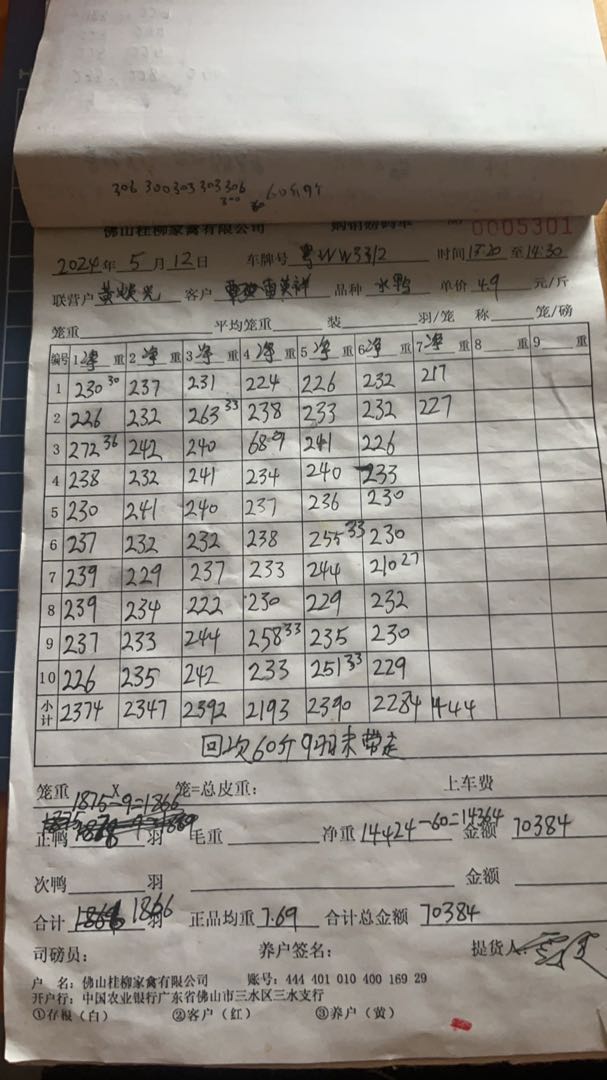 306 300 303 303 306
300 60斤9个
佛山桂柳家禽有限公司 0005301
2024年5月12日 车牌号 粤WW3312 时间13:20至14:30
联营户 黄焕光 客户 品种 水鸭 单价 4.9 元/斤
笼重 平均笼重 装 羽/笼 称 笼/磅
编号 1净重 2净重 3净重 4净重 5净重 6净重 7净重 8 重 9 重
1 230 30 237 231 224 226 232 217
2 226 232 263 33 238 233 232 227
3 272 36 242 240 68 9 241 226
4 238 232 241 234 240 233
5 230 241 240 237 236 230
6 237 232 232 238 255 33 230
7 239 229 237 233 244 210 27
8 239 234 222 230 229 232
9 237 233 244 258 33 235 230
10 226 235 242 233 251 33 229
小计 2374 2347 2392 2193 2390 2284 444
回次60斤9羽未带走
笼重 X 笼=总皮重: 上车费
1875-9=1866
正鸭 羽 毛重 净重 14424-60=14364 金额 70384
次鸭 羽 金额
合计 1866 羽 正品均重 7.69 合计总金额 70384
司磅员: 养户签名: 提货人:
户 名:佛山桂柳家禽有限公司 账号:444 401 010 400 169 29
开户行:中国农业银行广东省佛山市三水区三水支行
①存根(白) ②客户(红) ③养户(黄)